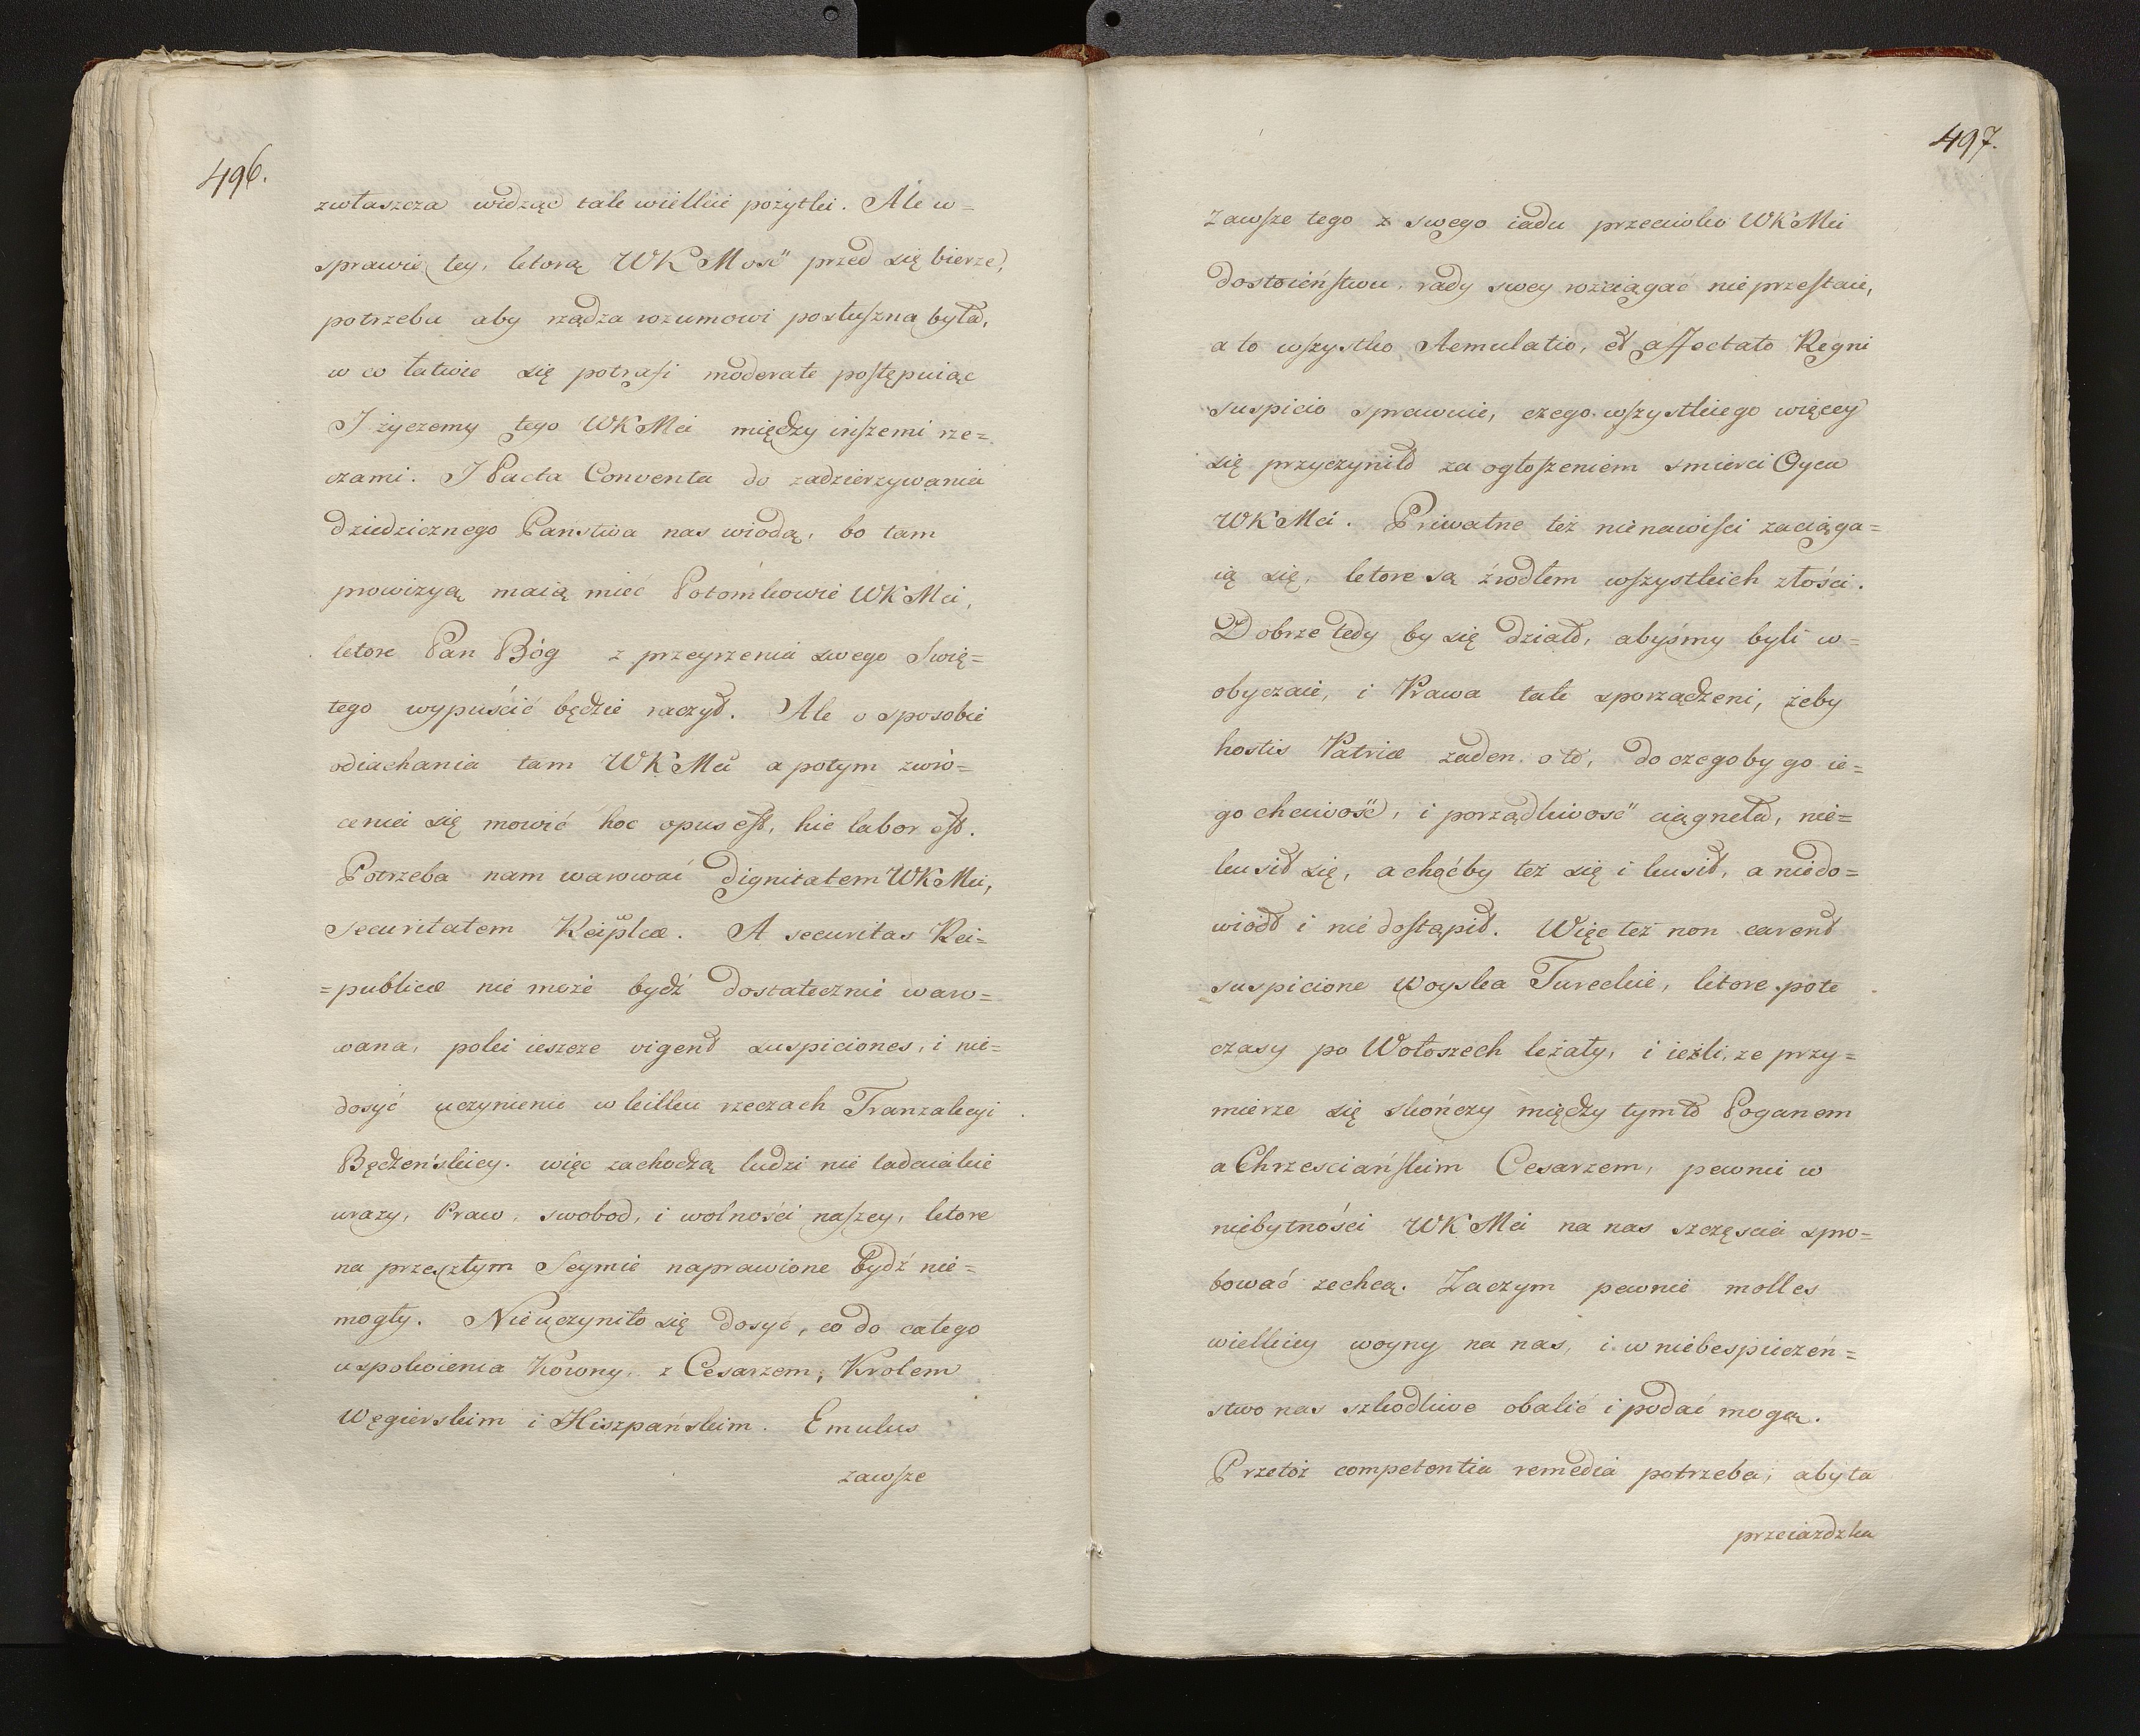 496.
zwłaszcza widząc tak wielkie pożytki. Ale w=
sprawie tey, ktorą WKMość przed się bierze,
potrzeba aby rządza rozumowi posłuszna była,
w co łatwie się potrafi moderate postępuiąc
I życzemy tego WKMci między inszemi rze=
czami. I Pacta Conventa do zadzierzywania
dziedzicznego Panstwa nas wiodą, bo tam
prowizyą maią mieć Potomkowie WKMci,
ktore Pan Bóg z przeyrzenia swego Swię=
tego wypuścić będzie raczył. Ale o sposobie
odiachania tam WKMci a potym zwró=
cenia się mowić hoc opus est, hic labor est.
Potrzeba nam warować dignitatem WKMci,
securitatem Reiplcæ. A securitas Rei=
=publicæ nie może bydź dostatecznie waro=
wana, poki ieszcze vigent suspiciones, i nie=
dosyć uczynienie w kilku rzeczach Tranzakcyi
Będzeńskiey. więc zachodzą ludzi nie ladaiakie
urazy, Praw, swobod, i wolności naszey, ktore
na przeszłym Seymie naprawione bydź nie=
mogły. Nieuczyniło się dosyć, co do całego
uspokoienia Kowny, z Cesarzem, Krolem
Węgierskim i Hiszpańskim. Emulus
zawsze
497.
zawsze tego z swego iadu przeciwko WKMci
dostoieństwu, rady swey rozciągać nie przestaie,
a to wszystko Aemulatio, et affectato Regni
suspicio sprawuie, czego wszystkiego więcey
się przyczyniło za ogłoszeniem smierci Oyca
WKMci. Priwatne też nienawiści zaciąga=
ią się, ktore są źrodłem wszystkich złości.
Dobrze tedy by się działo, abyśmy byli w=
obyczaie, i Prawa tak sporządzeni, żeby
hostis Patriæ zaden o to, do czegoby go ie=
go chciwość, i porządliwość ciągneła, nie=
kusił się, a choćby też się i kusił, a niedo=
wiodł i nie dostąpił. Więc też non carent
suspicione woyska Tureckie, ktore pote
czasy po Wołoszech leżały, i ieżli, ze przy=
mierze się skończy między tym to Poganem
a Chrzesciańskim Cesarzem, pewnie w
niebytności WKMci na nas szczęscia spro=
bować zechcą. Zaczym pewnie molles
wielkiey woyny na nas, i w niebespieczeń=
stwo nas szkodliwe obalić i podać mogą.
Przetoż competentia remedia potrzeba, aby ta
przeiazdzka